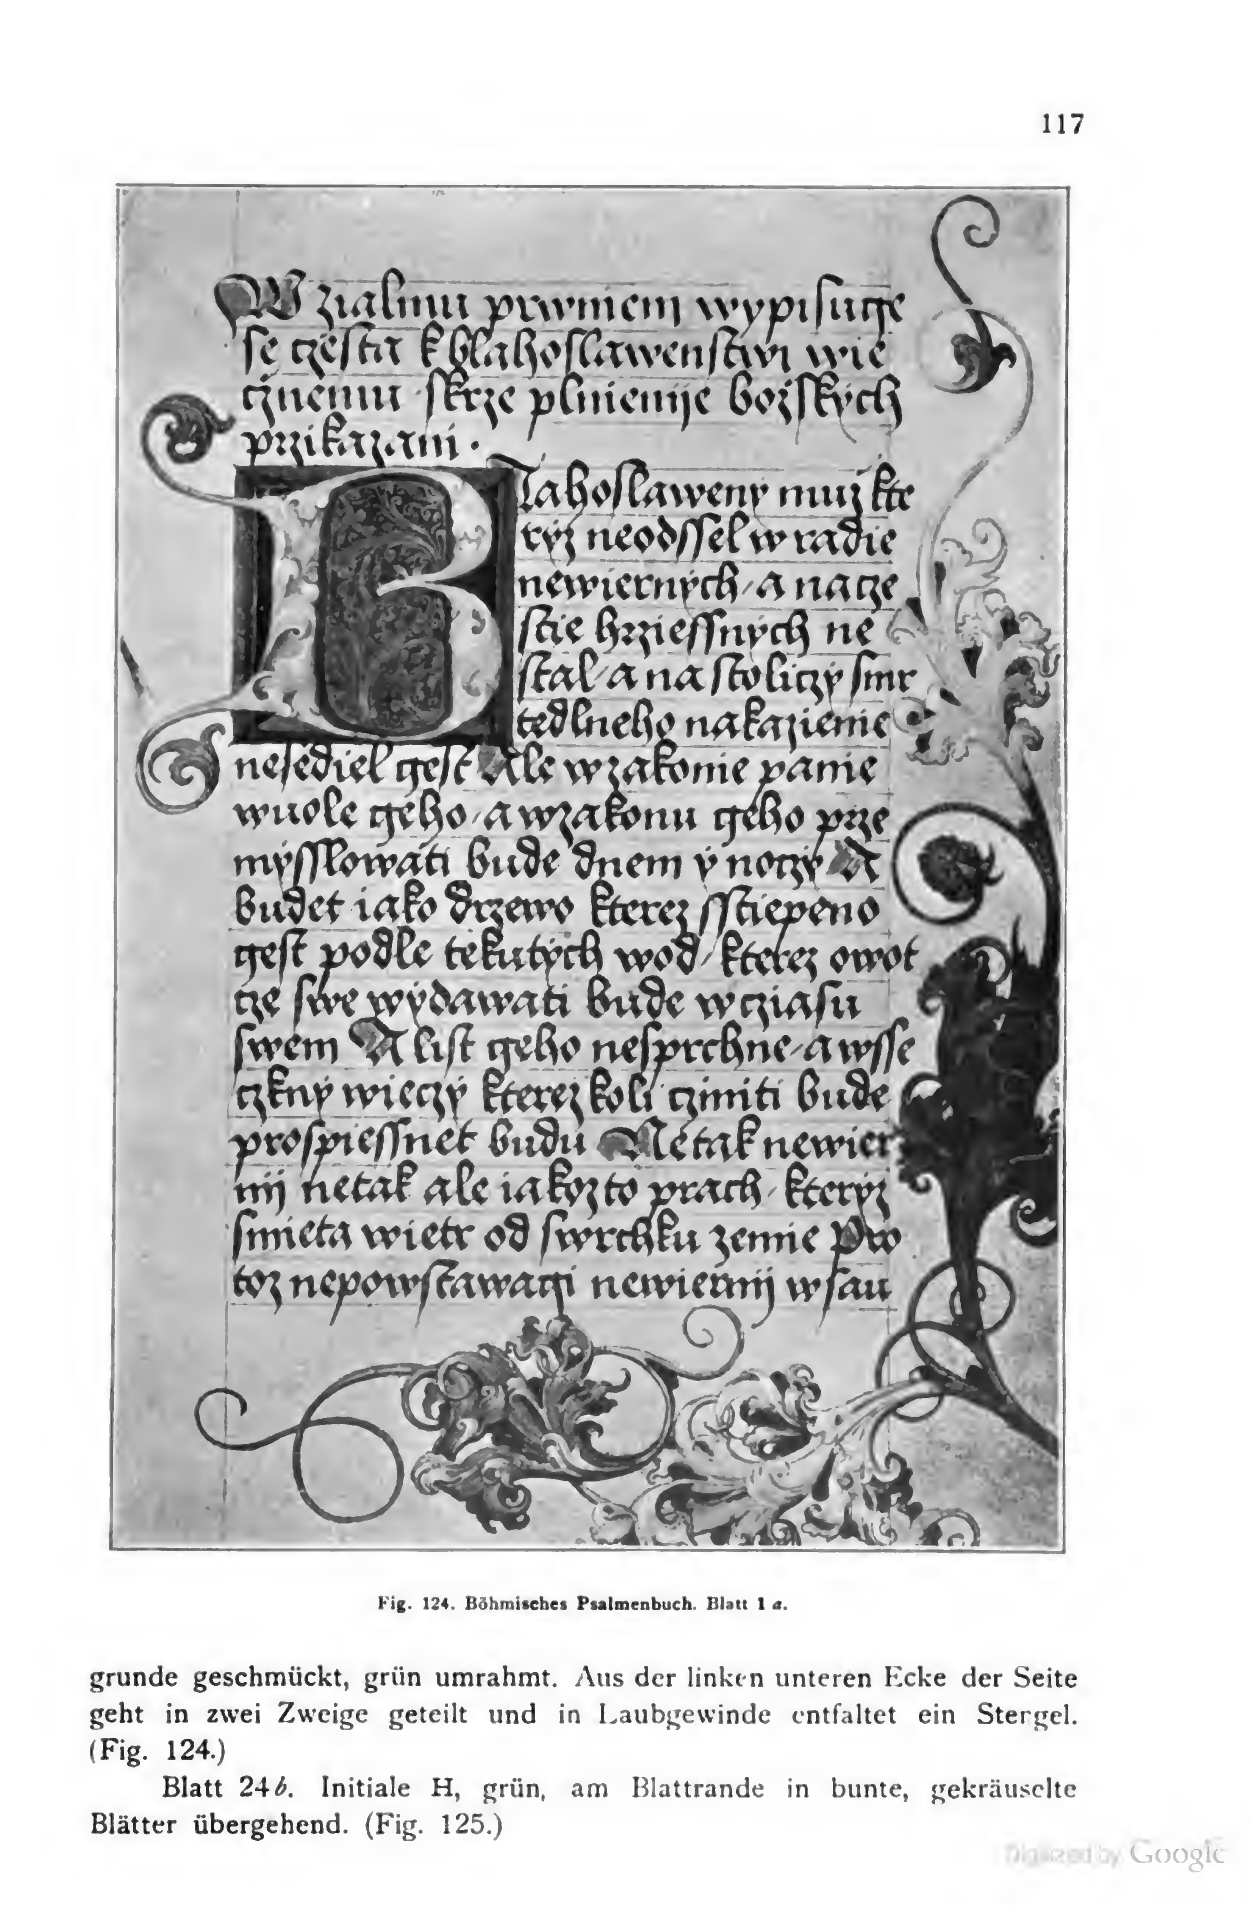 117
W zialmu prwniem wypisuge
se czesta k blahoslawenstwi wie
cznemu skrze plnienije bozskych
przikazani ·
Blahoslaweny muz kte
ryz neodssel w radie
newiernych / a na cze
stie hrziessnych ne
stal / a na stoliczy smr
tedlneho nakazienie
nesediel gest Ale w zakonie panie
wuole geho / a w zakonu geho prze
myssslowati bude dnem y noczy A
budet iako drzewo kterez sstiepeno
gest podle tekutych wod / kterez owot
cze swe wydawati bude w cziasu
swem A list geho nesprchne / a wsse
czkny wieczy kterez koli cziniti bude
prospiessnet budu Ne tak newier
nij ne tak ale iakozto prach / kteryz
smieta wietr od swrchku zemie Pro
toz nepowstawagi newiernij w sau
Fig. 124. Böhmisches Psalmenbuch. Blatt 1 a.
grunde geschmückt, grün umrahmt. Aus der linken unteren Ecke der Seite
geht in zwei Zweige geteilt und in Laubgewinde entfaltet ein Stergel.
(Fig. 124.)
Blatt 24 b. Initiale H, grün, am Blattrande in bunte, gekräuselte
Blätter übergehend. (Fig. 125.)
Digitized by Google